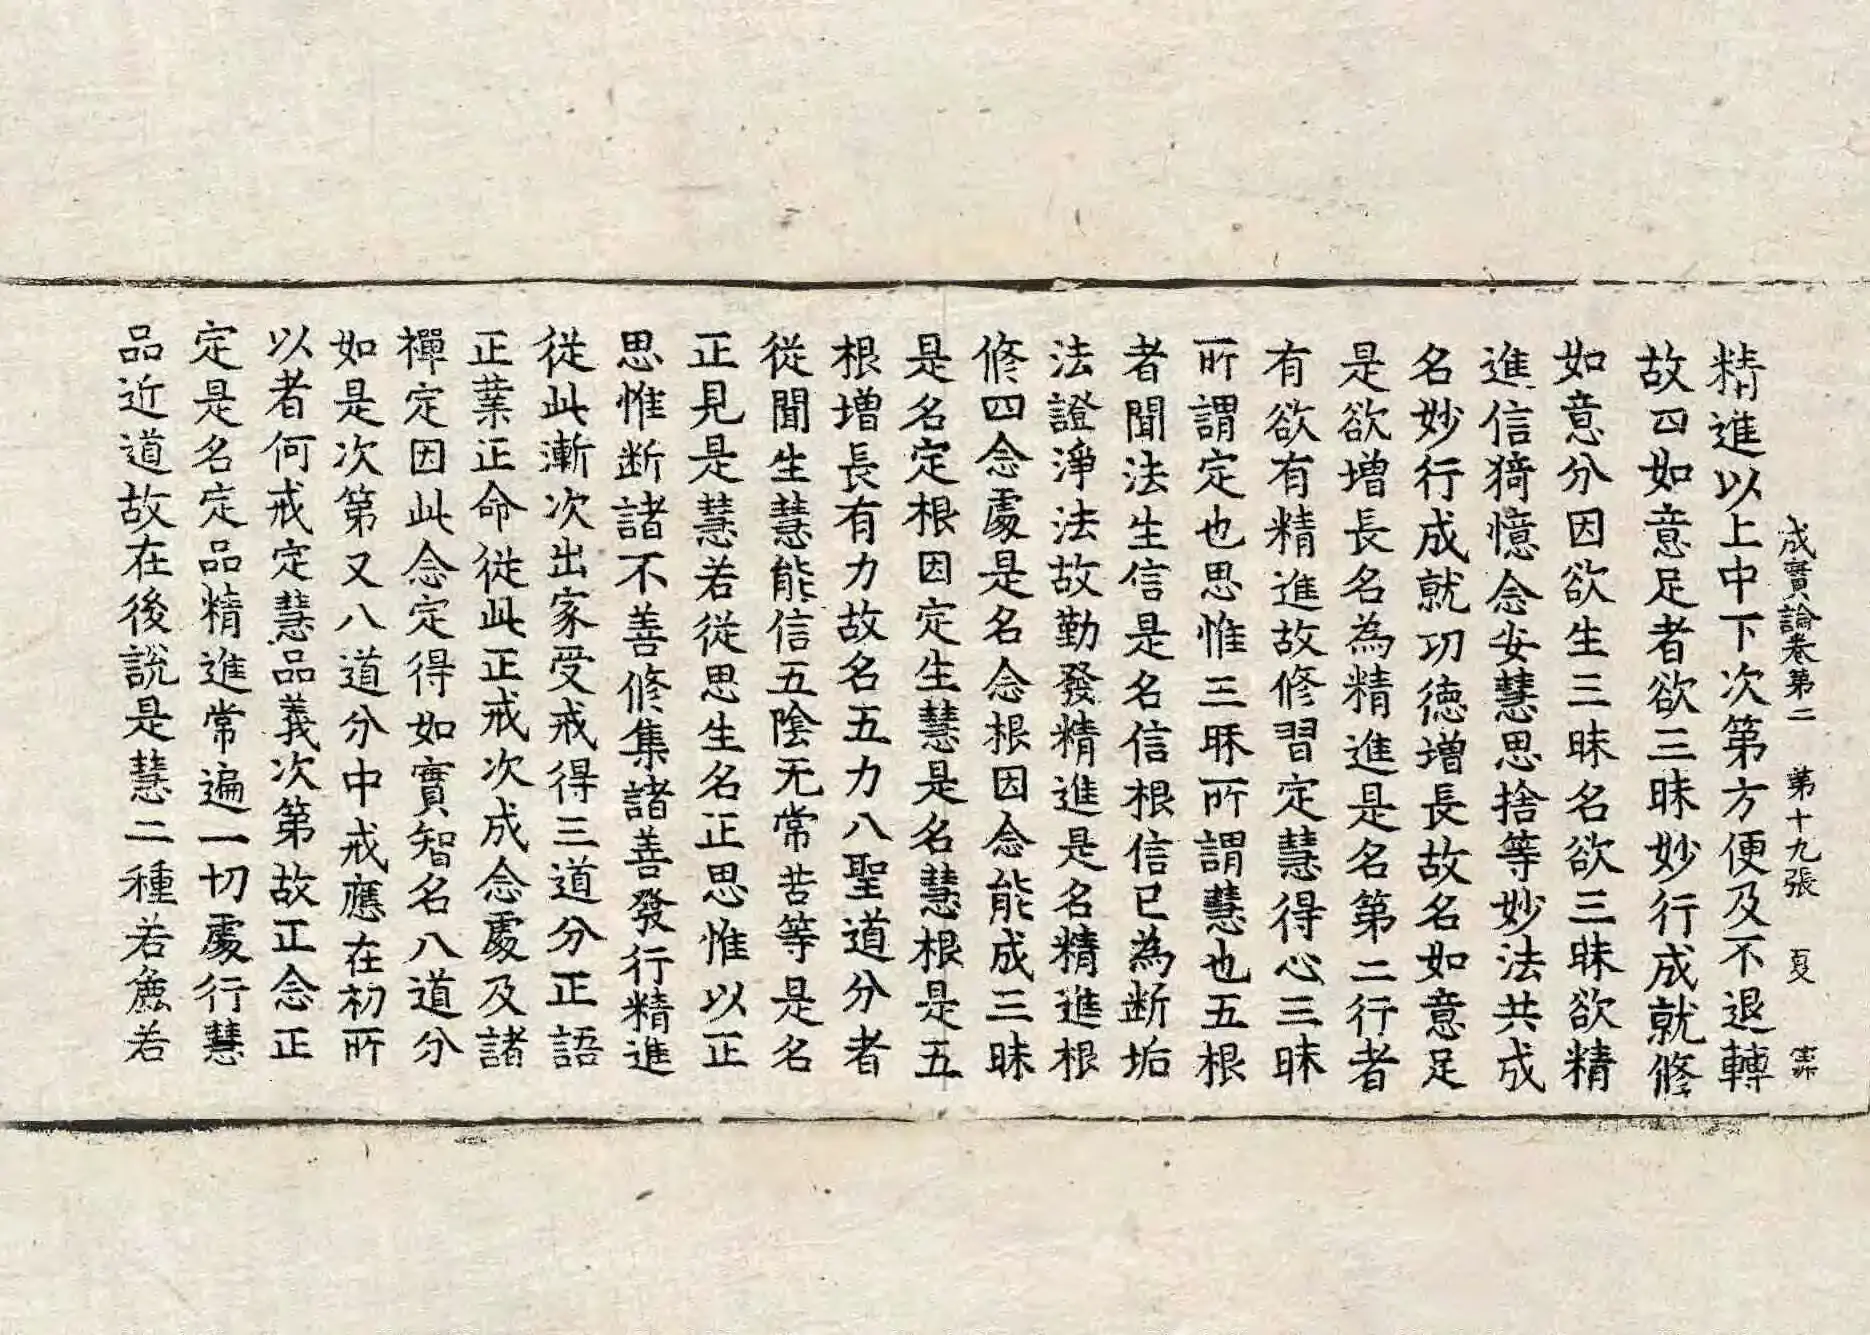 成實論卷第二 第十九張 夏
精進以上中下次第方便及不退轉
故四如意足者欲三昧妙行成就修
如意分因欲生三昧名欲三昧欲精
進信猗憶念安慧思捨等妙法共成
名妙行成就功德增長故名如意足
是欲增長名為精進是名第二行者
有欲有精進故修習定慧得心三昧
所謂定也思惟三昧所謂慧也五根
者聞法生信是名信根信已為断垢
法證淨法故勤發精進是名精進根
修四念處是名念根因念能成三昧
是名定根因定生慧是名慧根是五
根增長有力故名五力八聖道分者
從聞生慧能信五陰无常苦等是名
正見是慧若從思生名正思惟以正
思惟断諸不善修集諸善發行精進
從此漸次出家受戒得三道分正語
正業正命從此正戒次成念處及諸
禪定因此念定得如實智名八道分
如是次第又八道分中戒應在初所
以者何戒定慧品義次第故正念正
定是名定品精進常遍一切處行慧
品近道故在後說是慧二種若麁若